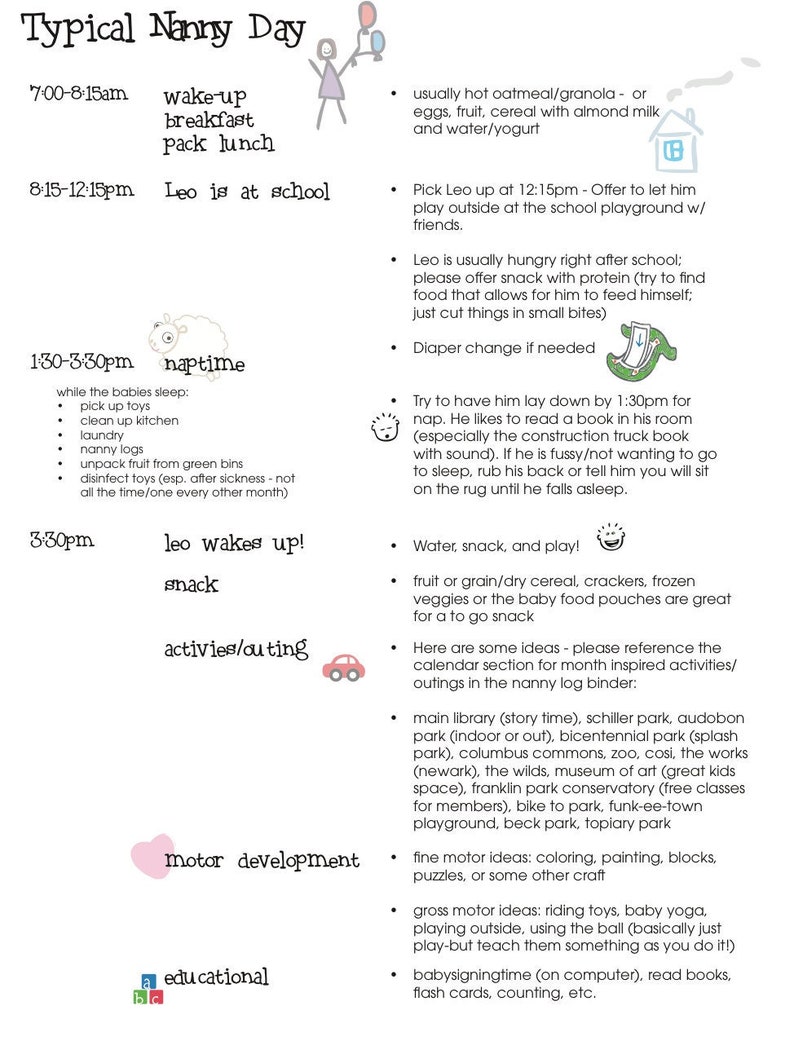 Typical Nanny Day
7:00-8:15am
wake-up
breakfast
pack lunch
• usually hot oatmeal/granola - or
eggs, fruit, cereal with almond milk
and water/yogurt
8:15-12:15pm
Leo is at school
• Pick Leo up at 12:15pm - Offer to let him
play outside at the school playground w/
friends.
• Leo is usually hungry right after school;
please offer snack with protein (try to find
food that allows for him to feed himself;
just cut things in small bites)
• Diaper change if needed
1:30-3:30pm
naptime
while the babies sleep:
• pick up toys
• clean up kitchen
• laundry
• nanny logs
• unpack fruit from green bins
• disinfect toys (esp. after sickness - not
all the time/one every other month)
• Try to have him lay down by 1:30pm for
nap. He likes to read a book in his room
(especially the construction truck book
with sound). If he is fussy/not wanting to go
to sleep, rub his back or tell him you will sit
on the rug until he falls asleep.
3:30pm
leo wakes up!
• Water, snack, and play!
snack
• fruit or grain/dry cereal, crackers, frozen
veggies or the baby food pouches are great
for a to go snack
activies/outing
• Here are some ideas - please reference the
calendar section for month inspired activities/
outings in the nanny log binder:
• main library (story time), schiller park, audobon
park (indoor or out), bicentennial park (splash
park), columbus commons, zoo, cosi, the works
(newark), the wilds, museum of art (great kids
space), franklin park conservatory (free classes
for members), bike to park, funk-ee-town
playground, beck park, topiary park
motor development
• fine motor ideas: coloring, painting, blocks,
puzzles, or some other craft
• gross motor ideas: riding toys, baby yoga,
playing outside, using the ball (basically just
play-but teach them something as you do it!)
a
b c
educational
• babysigningtime (on computer), read books,
flash cards, counting, etc.